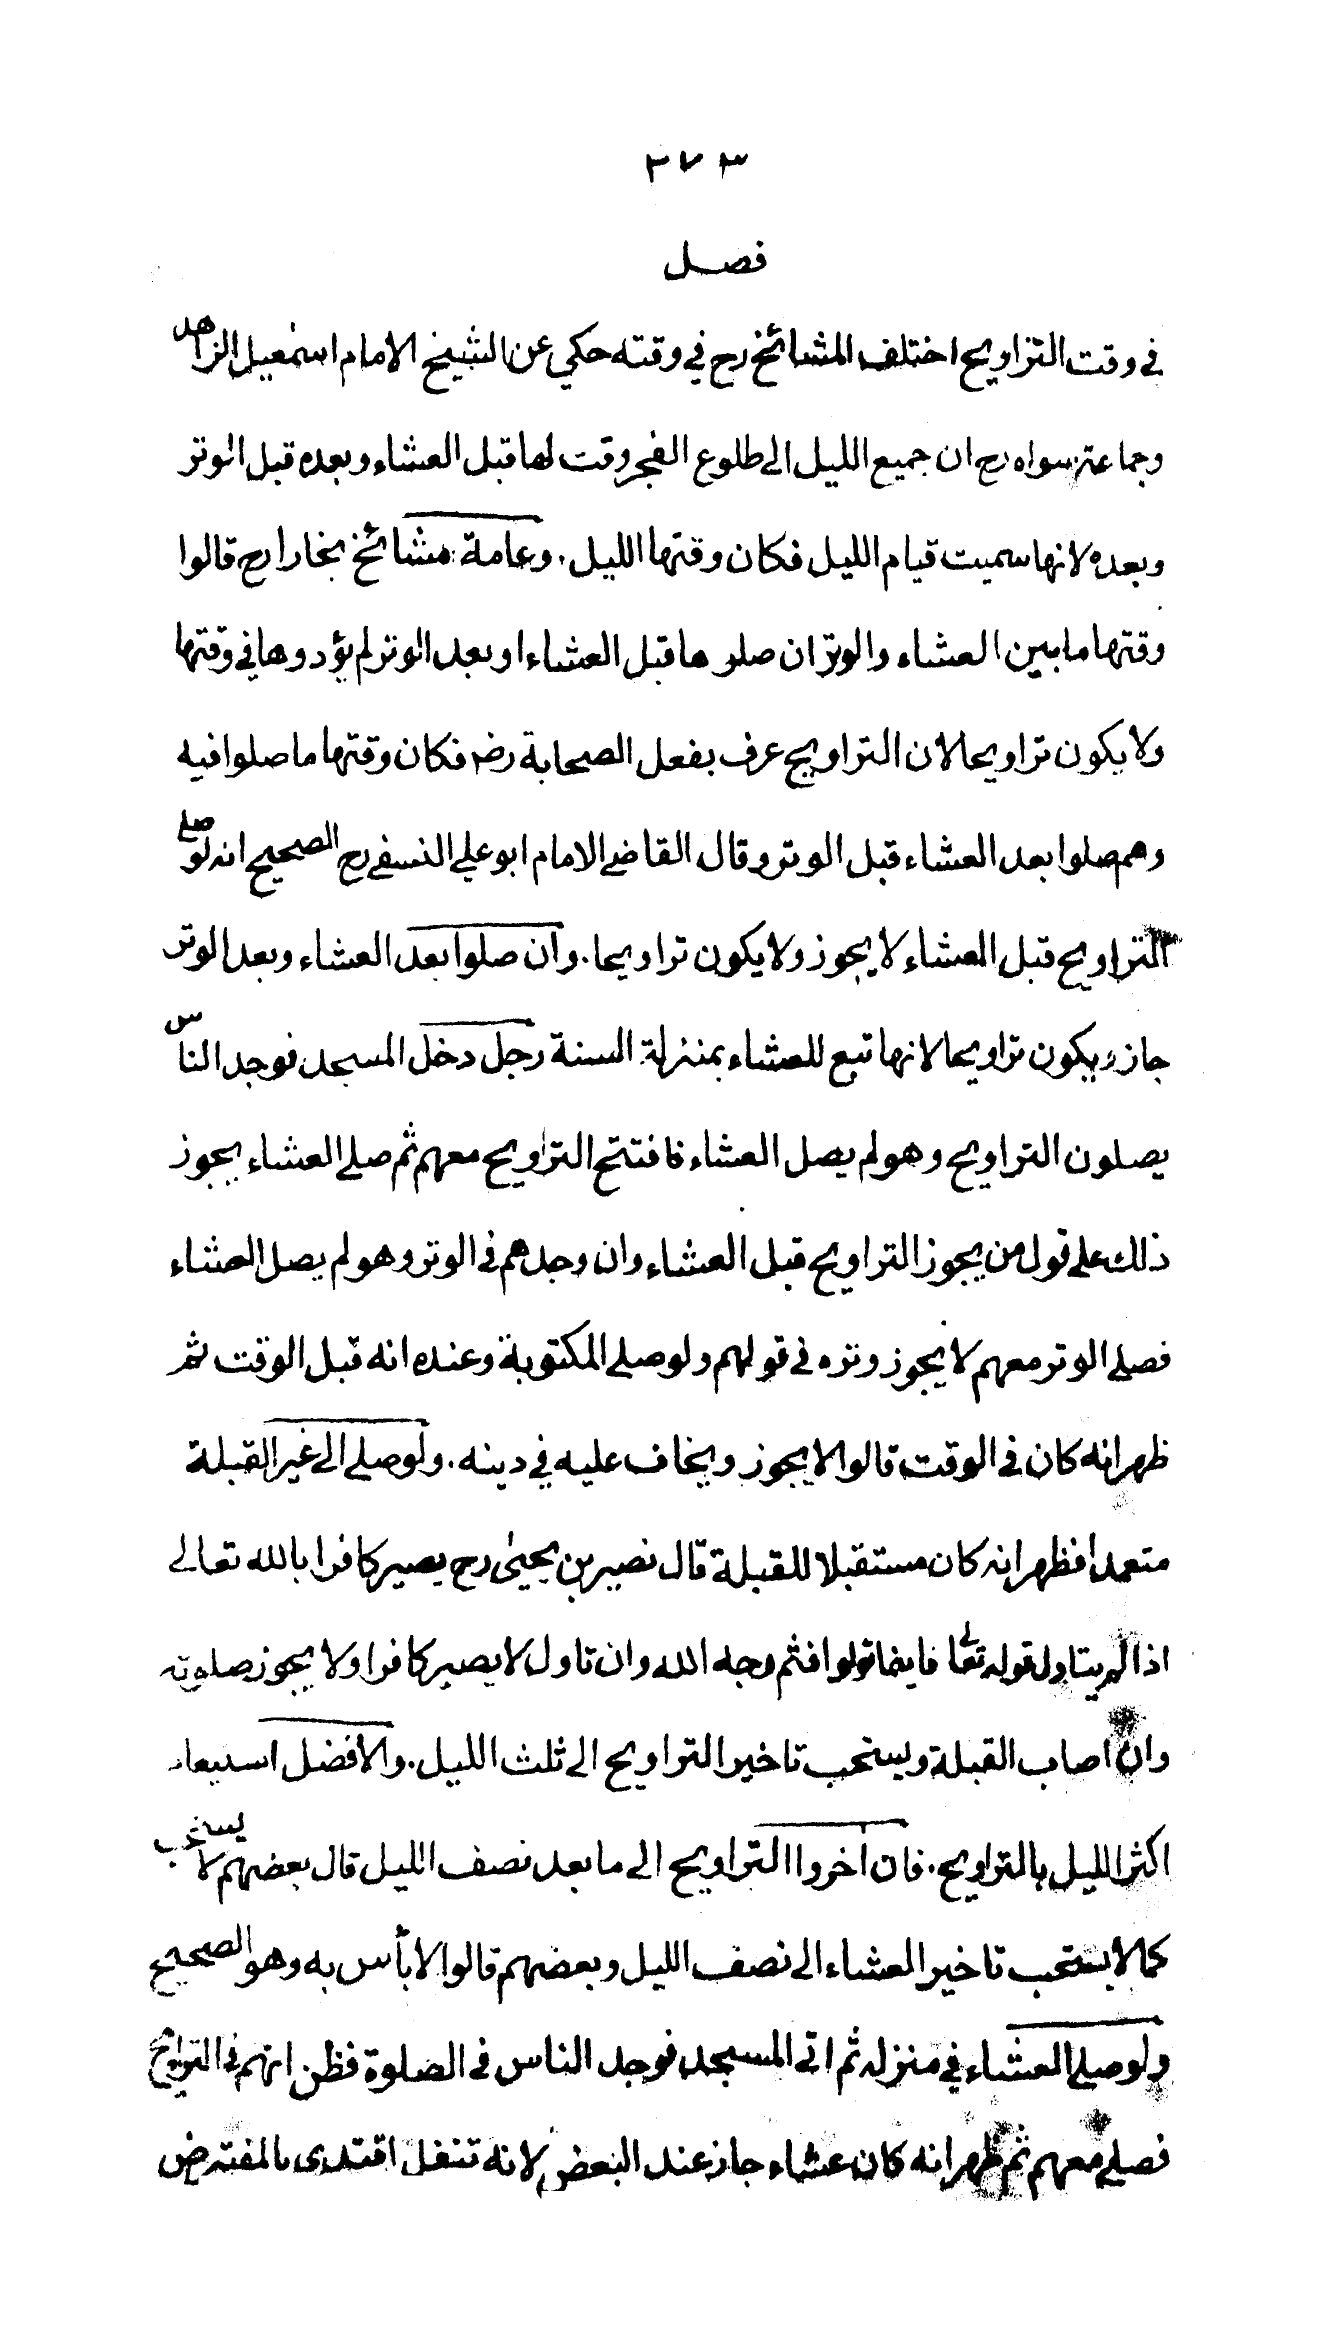 ٢٧٣
فصل
في وقت التراويح اختلف المشائخ رح في وقته حكي عن الشيخ الامام اسمٰعيل الزاهد
وجماعة سواه رح ان جميع الليل الى طلوع الفجر وقت لها قبل العشاء وبعده قبل الوتر
وبعده لانها سميت قيام الليل فكان وقتها الليل. وعامة مشائخ بخارا رح قالوا
وقتها ما بين العشاء والوتر ان صلوها قبل العشاء او بعد الوتر لم يؤدوها في وقتها
ولا يكون تراويحا لان التراويح عرف بفعل الصحابة رض فكان وقتها ما صلوا فيه
وهم صلوا بعد العشاء قبل الوتر وقال القاضي الامام ابو علي النسفي رح الصحيح انه لو صلى
التراويح قبل العشاء لا يجوز ولا يكون تراويحا. وان صلوا بعد العشاء وبعد الوتر
جاز ويكون تراويحا لانها تبع للعشاء بمنزلة السنة رجل دخل المسجد فوجد الناس
يصلون التراويح وهو لم يصل العشاء فافتتح التراويح معهم ثم صلى العشاء يجوز
ذلك على قول من يجوز التراويح قبل العشاء وان وجدهم في الوتر وهو لم يصل العشاء
فصلى الوتر معهم لا يجوز وتره في قولهم ولو صلى المكتوبة وعنده انه قبل الوقت ثم
ظهر انه كان في الوقت قالوا لا يجوز ويخاف عليه في دينه. ولو صلى الى غير القبلة
متعمدا فظهر انه كان مستقبلا للقبلة قال نصير بن يحيىٰ رح يصير كافرا بالله تعالى
اذا لم يتاول قوله تعالى فاينما تولوا فثم وجه الله وان تاول لا يصير كافرا ولا يجوز صلوته
وان اصاب القبلة ويستحب تاخير التراويح الى ثلث الليل. والافضل استيعاب
اكثر الليل بالتراويح. فان أخروا التراويح الى ما بعد نصف الليل قال بعضهم لا يستحب
كما لا يستحب تاخير العشاء الى نصف الليل وبعضهم قالوا لا بأس به وهو الصحيح
ولو صلى العشاء في منزله ثم اتى المسجد فوجد الناس في الصلوة فظن انهم في التراويح
فصلى معهم ثم ظهر انه كان عشاء جاز عند البعض لانه تنفل اقتدى بالمفترض